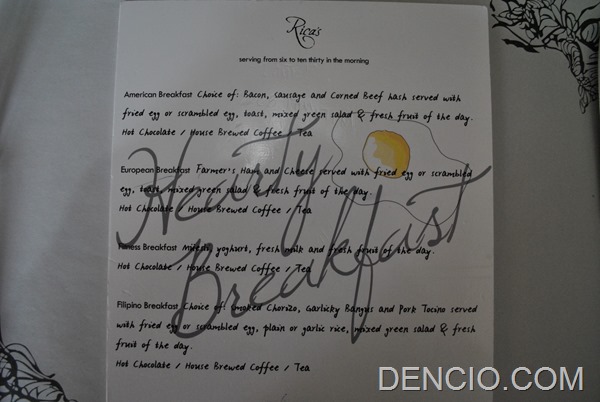 Rica's
serving from six to ten thirty in the morning
Hearty
Breakfast
American Breakfast Choice of: Bacon, Sausage and Corned Beef hash served with
fried egg or scrambled egg, toast, mixed green salad & fresh fruit of the day.
Hot Chocolate / House Brewed Coffee / Tea
European Breakfast Farmer's Ham and Cheese served with fried egg or scrambled
egg, toast, mixed green salad & fresh fruit of the day.
Hot Chocolate / House Brewed Coffee / Tea
Fitness Breakfast Muesli, yoghurt, fresh milk and fresh fruit of the day.
Hot Chocolate / House Brewed Coffee / Tea
Filipino Breakfast Choice of: Smoked Chorizo, Garlicky Bangus and Pork Tocino served
with fried egg or scrambled egg, plain or garlic rice, mixed green salad & fresh
fruit of the day.
Hot Chocolate / House Brewed Coffee / Tea
DENCIO.COM